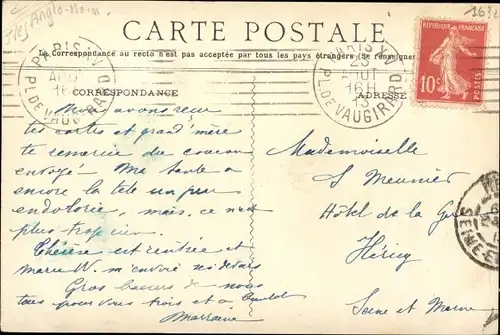 CARTE POSTALE
La Correspondance au recto n'est pas acceptée par tous les pays étrangers (Se renseigner
PARIS XV
PL. DE VAUGIRARD
PARIS XV
23
AOUT
16H
13
PL. DE VAUGIRARD
RÉPUBLIQUE FRANÇAISE
10c
POSTES
CORRESPONDANCE
ADRESSE
Nous avons reçu
tes cartes et grand'mère
te remercie du
envoyé. Ma tante a
encore la tête un peu
endolorie, mais, ce n'est
plus trop rien.
Thérèse est rentrée et
Marie W. m'envoie
Gros baisers de nous
tous pour vous trois et à
Marraine
Mademoiselle
S Meunier
Hôtel de la Gare
Héricy
Seine et Marne
SEINE-E